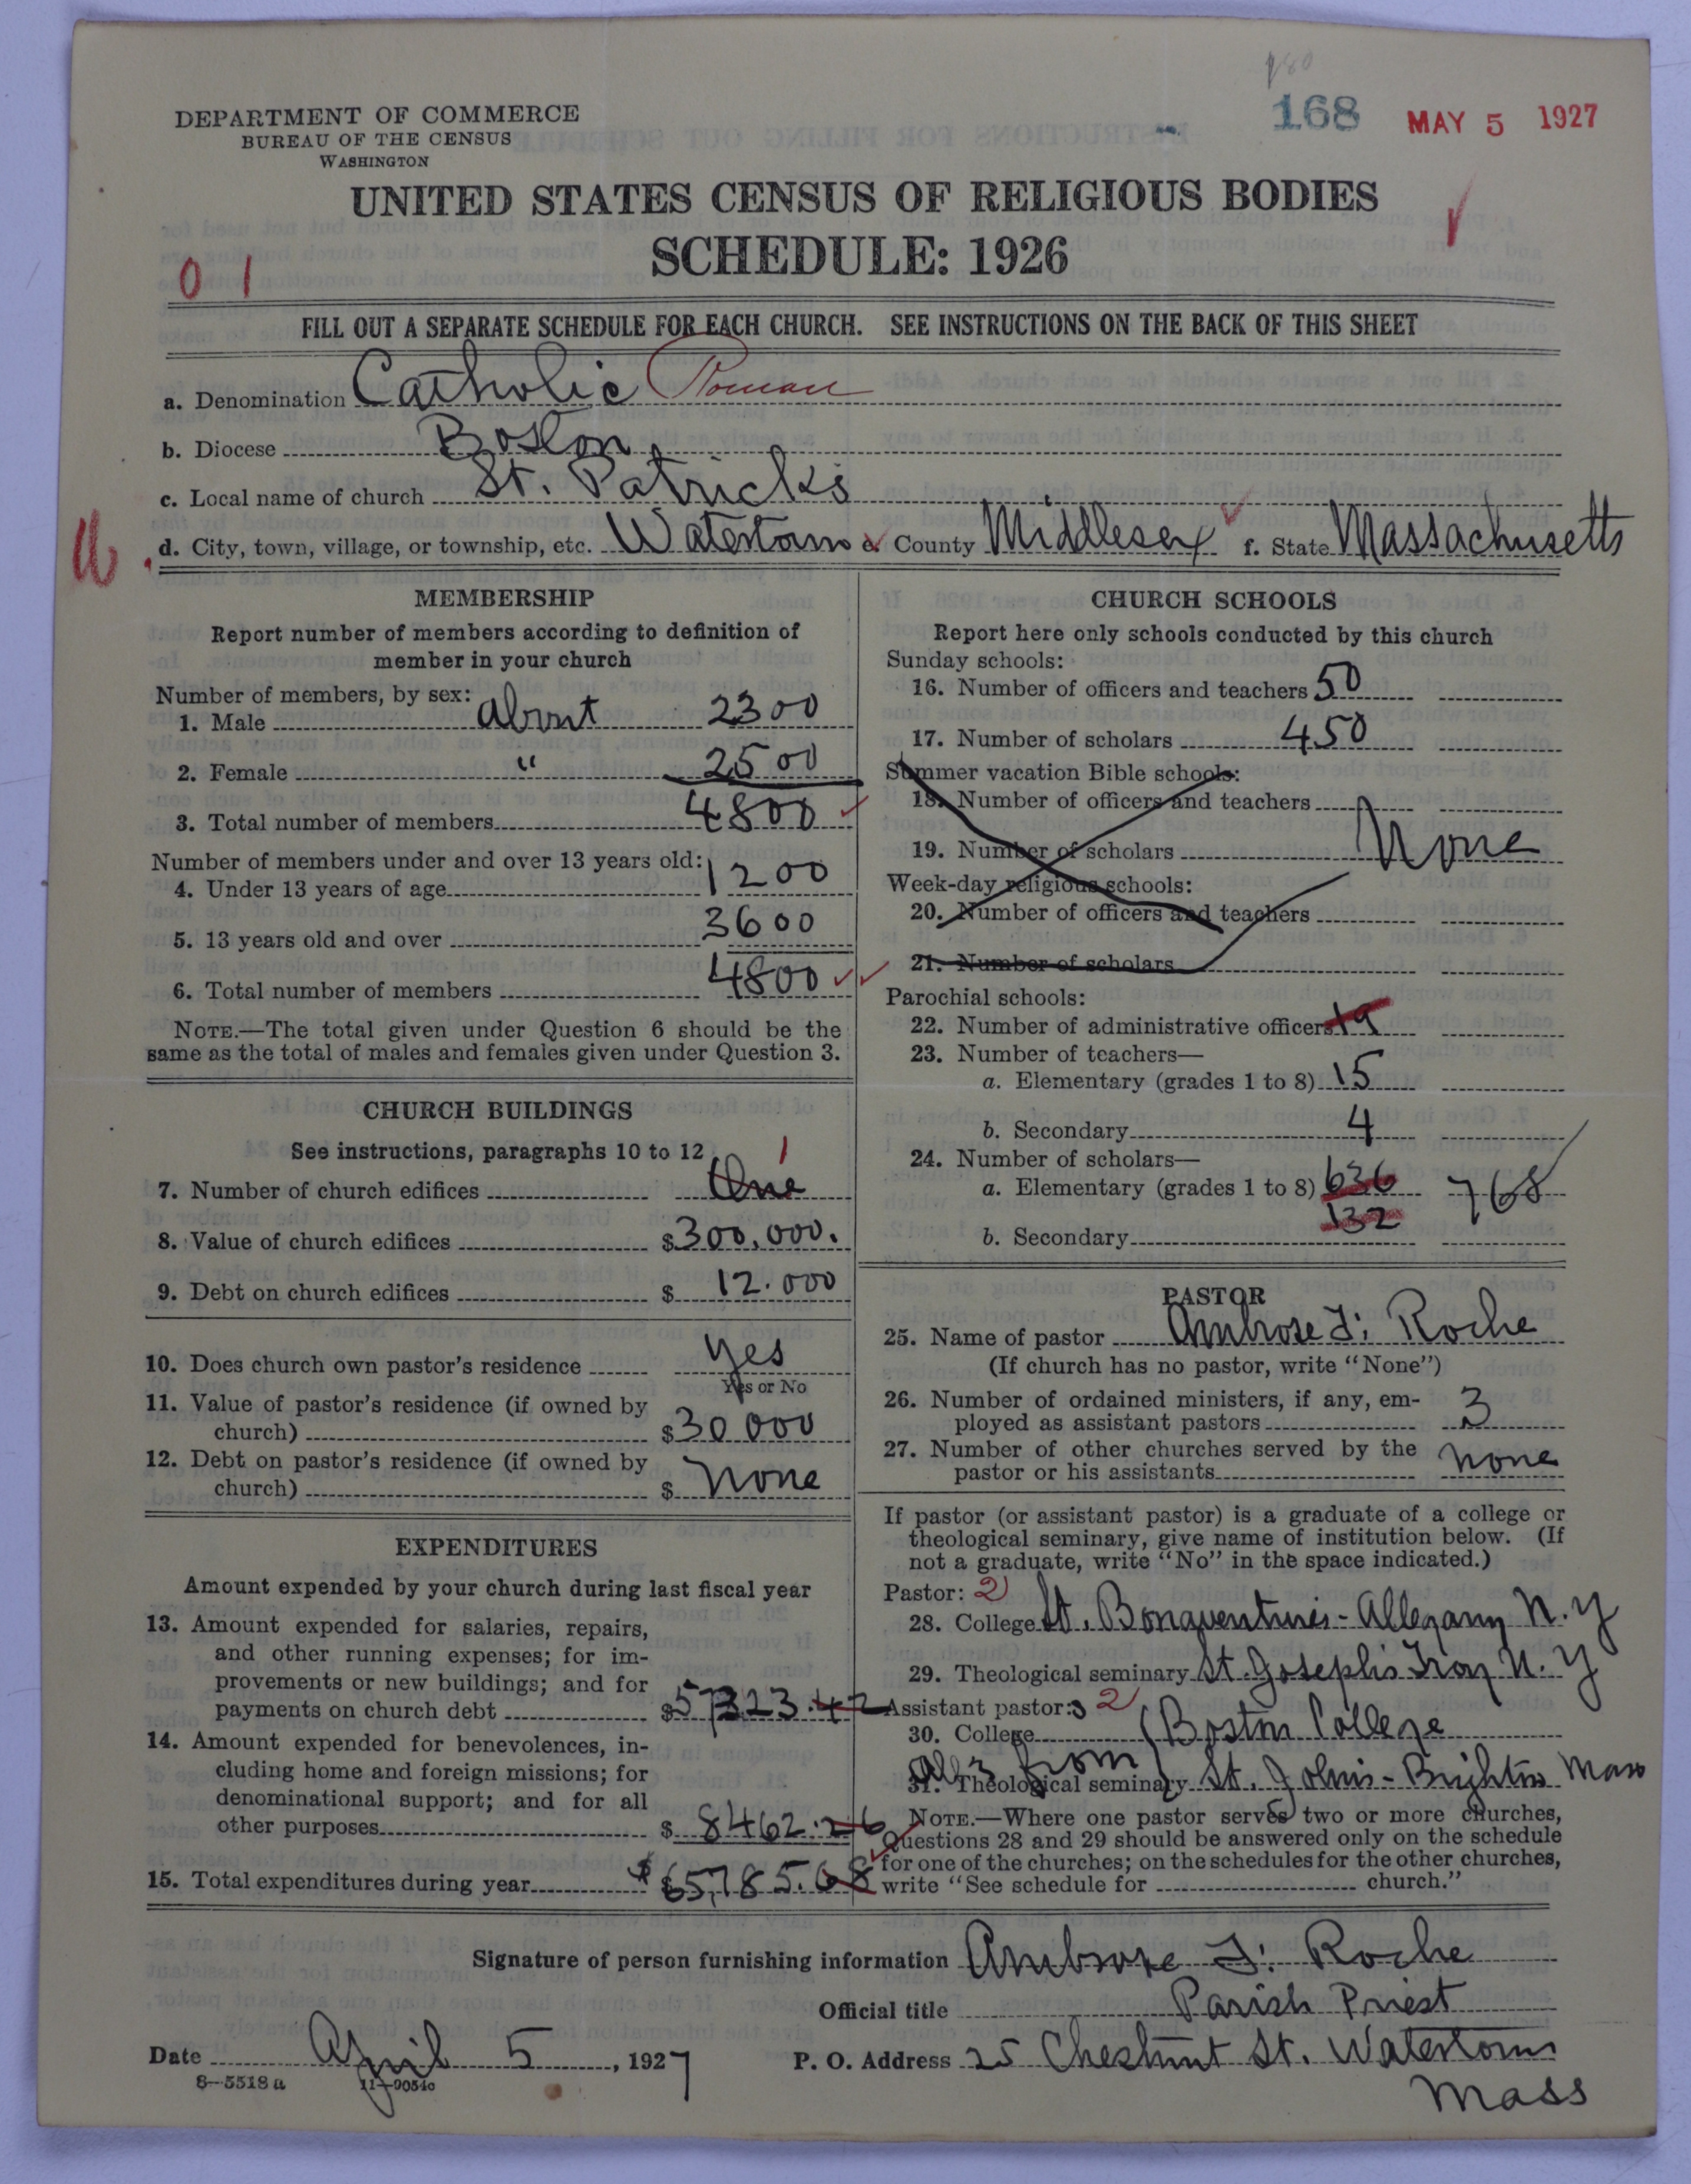 180
168 MAY 5 1927
DEPARTMENT OF COMMERCE
BUREAU OF THE CENSUS
WASHINGTON
UNITED STATES CENSUS OF RELIGIOUS BODIES
SCHEDULE: 1926
0 1
FILL OUT A SEPARATE SCHEDULE FOR EACH CHURCH. SEE INSTRUCTIONS ON THE BACK OF THIS SHEET
a. Denomination Catholic Roman
b. Diocese Boston
c. Local name of church St. Patricks
d. City, town, village, or township, etc. Watertown e. County Middlesex f. State Massachusetts
MEMBERSHIP
Report number of members according to definition of
member in your church
Number of members, by sex:
1. Male about 2300
2. Female " 2500
3. Total number of members 4800
Number of members under and over 13 years old:
4. Under 13 years of age 1200
5. 13 years old and over 3600
6. Total number of members 4800
NOTE.—The total given under Question 6 should be the
same as the total of males and females given under Question 3.
CHURCH BUILDINGS
See instructions, paragraphs 10 to 12
1
7. Number of church edifices One
8. Value of church edifices $300,000.
9. Debt on church edifices $ 12.000
10. Does church own pastor's residence yes
Yes or No
11. Value of pastor's residence (if owned by
church) $30000
12. Debt on pastor's residence (if owned by
church) $ None
EXPENDITURES
Amount expended by your church during last fiscal year
13. Amount expended for salaries, repairs,
and other running expenses; for im-
provements or new buildings; and for
payments on church debt $57323.42
14. Amount expended for benevolences, in-
cluding home and foreign missions; for
denominational support; and for all
other purposes $ 8462.26
15. Total expenditures during year $ $65,785.68
CHURCH SCHOOLS
Report here only schools conducted by this church
Sunday schools:
16. Number of officers and teachers 50
17. Number of scholars 450
Summer vacation Bible schools:
18. Number of officers and teachers
19. Number of scholars None
Week-day religious schools:
20. Number of officers and teachers
21. Number of scholars
Parochial schools:
22. Number of administrative officers 19
23. Number of teachers—
a. Elementary (grades 1 to 8) 15
b. Secondary 4
24. Number of scholars—
a. Elementary (grades 1 to 8) 636 768
b. Secondary 132
PASTOR
25. Name of pastor Ambrose F. Roche
(If church has no pastor, write "None")
26. Number of ordained ministers, if any, em-
ployed as assistant pastors 3
27. Number of other churches served by the
pastor or his assistants None
If pastor (or assistant pastor) is a graduate of a college or
theological seminary, give name of institution below. (If
not a graduate, write "No" in the space indicated.)
Pastor: 2
28. College St. Bonaventure's - Allegany N.Y
29. Theological seminary St. Joseph's Troy N.Y
Assistant pastor: 3 2
30. College Boston College
All 3 from
31. Theological seminary St. John's - Brighton Mass
NOTE.—Where one pastor serves two or more churches,
Questions 28 and 29 should be answered only on the schedule
for one of the churches; on the schedules for the other churches,
write "See schedule for church."
Signature of person furnishing information Ambrose F. Roche
Official title Parish Priest
Date April 5, 1927 P. O. Address 25 Chestnut St. Watertown
Mass
8—5518 a 11—9054c